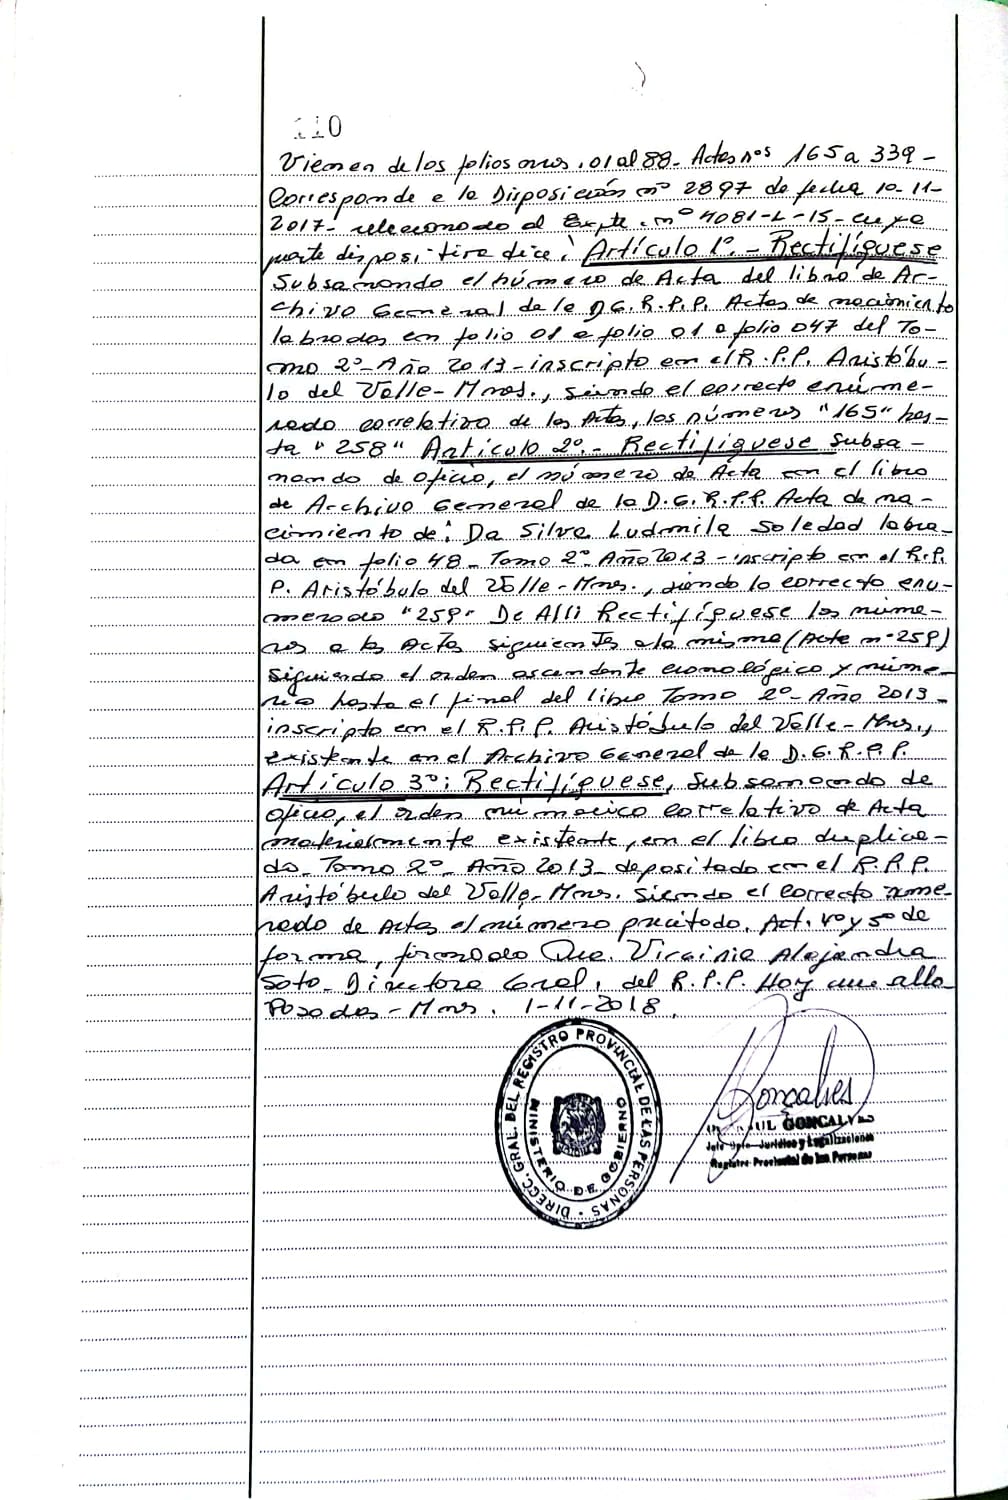 110
Vienen de los folios nros. 01 al 88- Actas nos 165 a 339-
Corresponde a la Disposición nº 2897 de fecha 10-11-
2017- relacionado al Expte. nº 4081-L-15- cuya
parte disposi-tiva dice: Artículo 1º.- Rectifíquese
Subsanando el número de Acta del libro de Ar-
chivo General de la D.G.R.P.P. Actas de nacimiento
labradas en folio 01 a folio 01 a folio 047 del To-
mo 2º- Año 2013-inscripto en el R.P.P. Aristóbu-
lo del Valle- Mnes., siendo el correcto enúme-
rado correlativo de las Actas, los números "165" has-
ta "258" Artículo 2º.- Rectifíquese subsa-
nando de oficio, el número de Acta en el libro
de Archivo General de la D.G.R.P.P. Acta de na-
cimiento de: Da Silva Ludmila Soledad labra-
da en folio 48- Tomo 2º Año 2013-inscripto en el R.P.
P. Aristóbulo del Valle-Mnes., siendo lo correcto enu-
merado "259" De Allí Rectifíquese los núme-
ros a las Actas siguientes a la misma (Acta nº 259)
siguiendo el orden ascendente cronológico y númé-
rico hasta el final del libro Tomo 2º- Año 2013-
inscripto en el R.P.P. Aristóbulo del Valle- Mnes.,
existente en el Archivo General de la D.G.R.P.P.
Artículo 3º: Rectifíquese, Subsanando de
oficio, el orden numérico correlativo de Acta
materialmente existente, en el libro duplica-
do- Tomo 2º- Año 2013- depositado en el R.P.P.
Aristóbulo del Valle- Mnes. siendo el correcto nume-
rado de Actas el número precitado. Art. 4º y 5º de
forma, firmado Dra. Virginia Alejandra
Soto- Directora Gral. del R.P.P. Hoy
Posadas- Mnes. 1-11-2018.
DIRECC. GRAL. DEL REGISTRO PROVINCIAL DE LAS PERSONAS
MINISTERIO DE GOBIERNO
Goncalves
GONCALVES
Jefe Dpto. Jurídico y Legalizaciones
Registro Provincial de las Personas